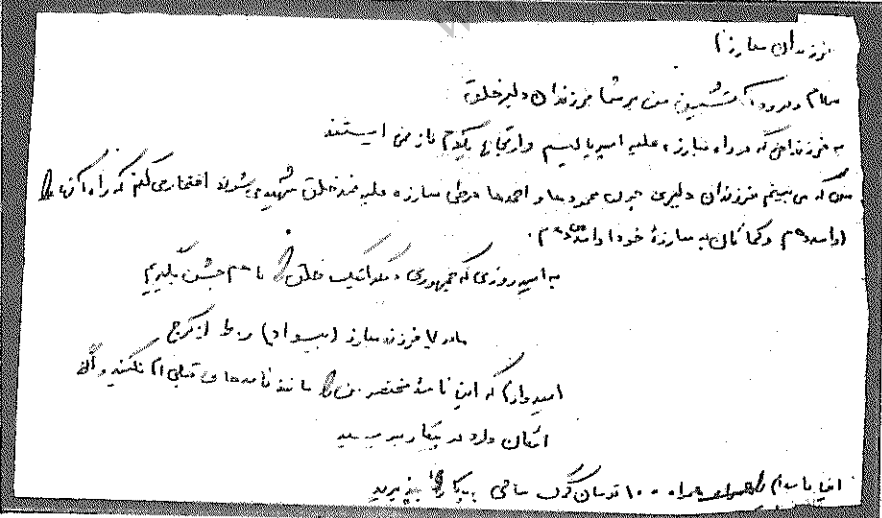 فرزندان مبارزم
سلام و درود آتشین من بر شما فرزندان دلیر خلق
به فرزندانی که در راه مبارزه علیه امپریالیسم وارتجاع یکدم باز نمی ایستند
من که می بینم فرزندان دلیری چون محمودها و احمدها درطی مبارزه علیه ضدخلق شهید می شوند افتخار می کنم که راه آنها را
ادامه دهم و کماکان به مبارزهٔ خود ادامه دهم.
به امید روزی که جمهوری دمکراتیک خلق را با هم جشن بگیریم
مادر ۷ فرزند مبارز (بیسواد) ربط از کرج
امیدوارم که این نامهٔ مختصر من را مانند نامه های قبلی ام نکنید و اگر
امکان دارد در پیکار
همراه ۱۰۰ تومان کمک مالی بپذیرید